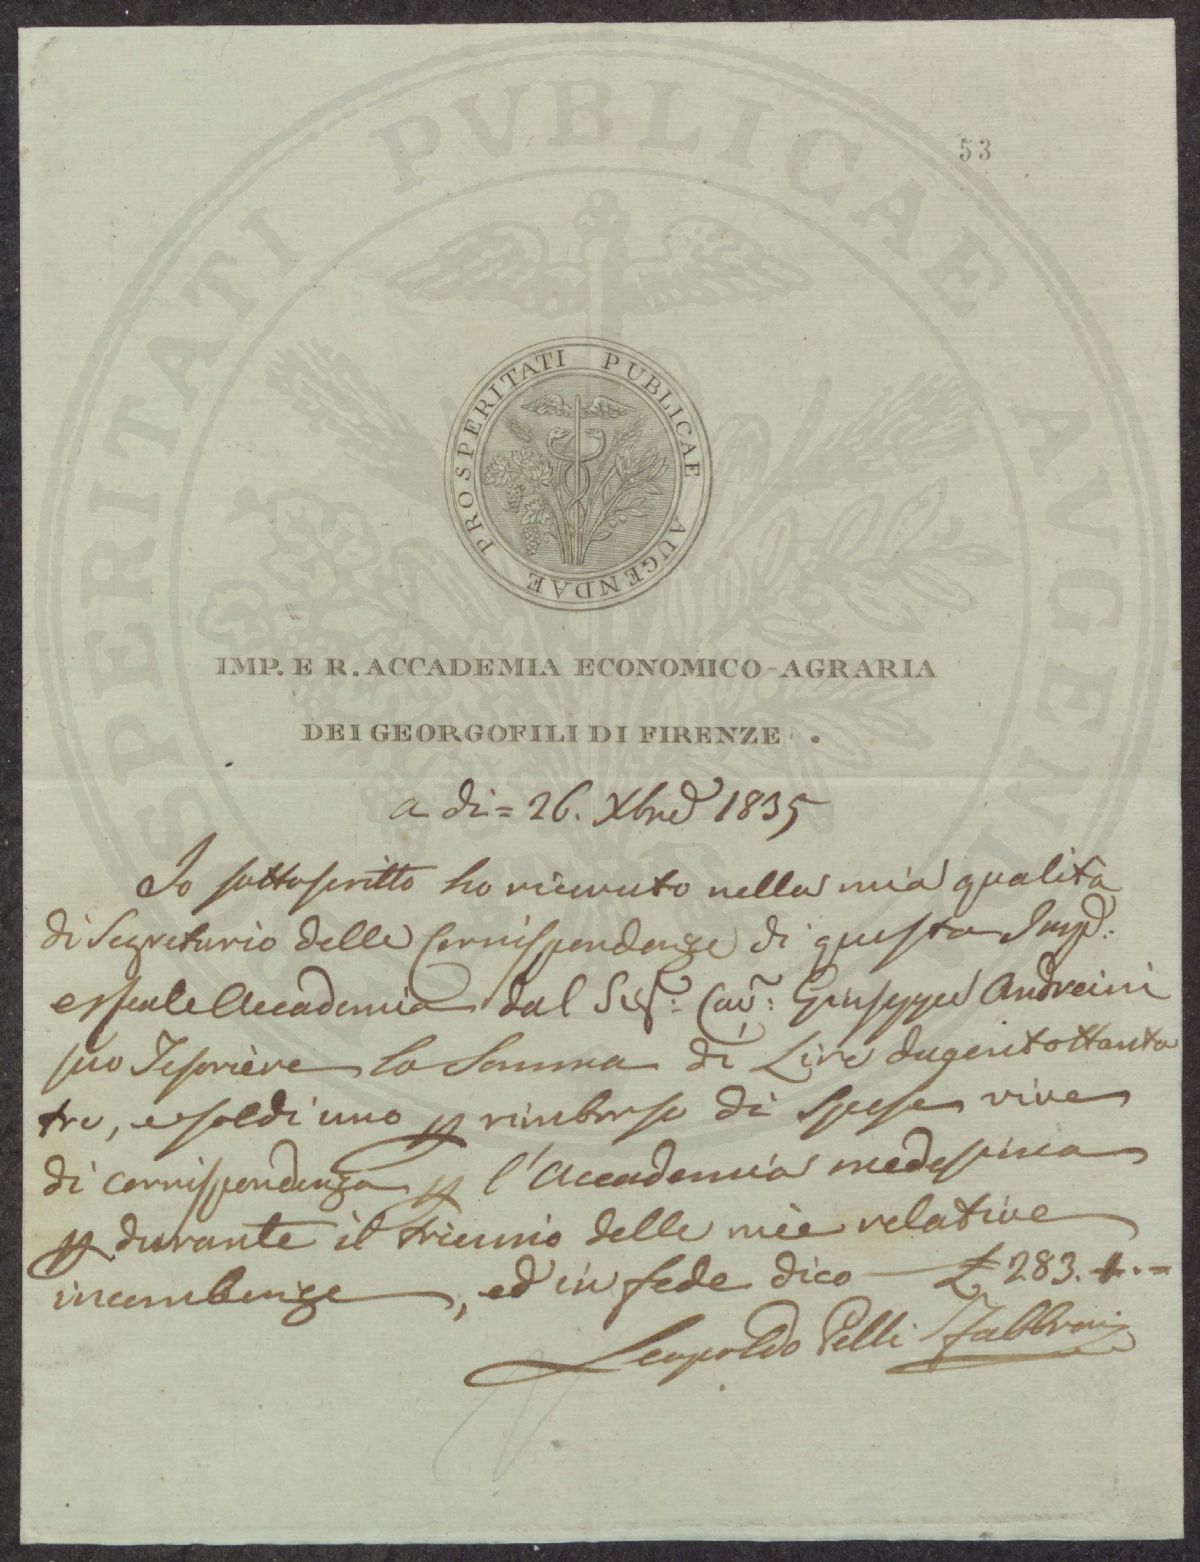 53
PROSPERITATI PUBLICAE AUGENDAE
IMP. E R. ACCADEMIA ECONOMICO-AGRARIA
DEI GEORGOFILI DI FIRENZE.
a di = 26. Xbre 1835
Io sottoscritto ho ricevuto nella mia qualità
di Segretario delle Corrispondenze di questa Imp:
e Reale Accademia dal Sig: Cav: Giuseppe Andreini
suo Tesoriere la Somma di Lire dugentottanta
tre, e soldi uno p rimborso di Spese vive
di corrispondenza p l'Accademia medesima
p durante il triennio delle mie relative
incumbenze, ed in fede dico £ 283. 1. =
Leopoldo Pelli Fabbroni